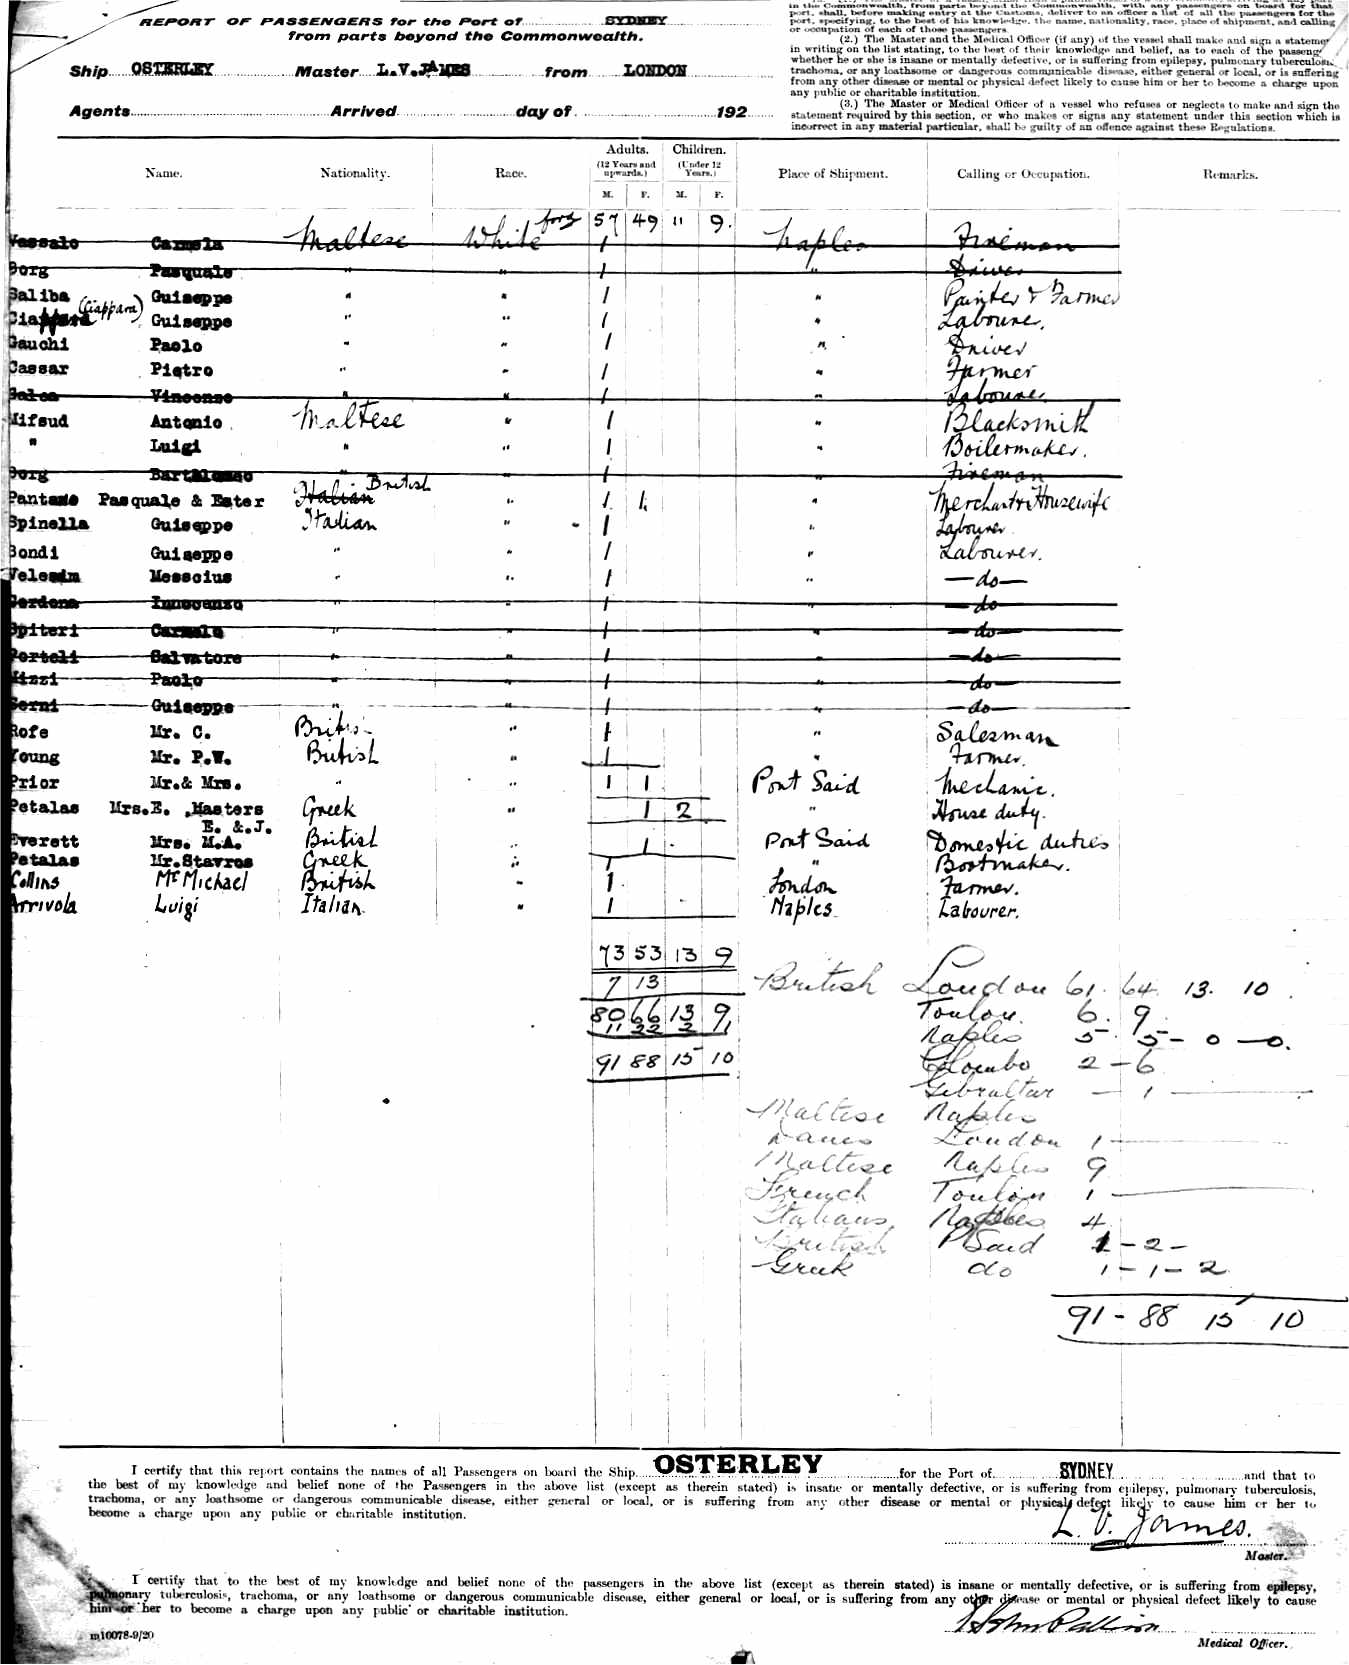 in the Commonwealth, from parts beyond the Commonwealth, with any passengers on board for that
REPORT OF PASSENGERS for the Port of SYDNEY
port, shall, before making entry at the Customs, deliver to an officer a list of all the passengers for the
from parts beyond the Commonwealth.
port, specifying, to the best of his knowledge, the name, nationality, race, place of shipment, and calling
or occupation of each of those passengers.
(2.) The Master and the Medical Officer (if any) of the vessel shall make and sign a stateme
in writing on the list stating, to the best of their knowledge and belief, as to each of the passeng
Ship OSTERLEY Master L.V.JAMES from LONDON
whether he or she is insane or mentally defective, or is suffering from epilepsy, pulmonary tuberculosis,
trachoma, or any loathsome or dangerous communicable disease, either general or local, or is suffering
from any other disease or mental or physical defect likely to cause him or her to become a charge upon
any public or charitable institution.
Agents Arrived day of 192
(3.) The Master or Medical Officer of a vessel who refuses or neglects to make and sign the
statement required by this section, or who makes or signs any statement under this section which is
incorrect in any material particular, shall be guilty of an offence against these Regulations.
Name. Nationality. Race. Adults. (12 Years and upwards.) M. F. Children. (Under 12 Years.) M. F. Place of Shipment. Calling or Occupation. Remarks.
ford 57 49 11 9.
Vassalo Carmela Maltese White 1 Naples Fireman
Borg Pasquale " " 1 " Driver
Saliba Guiseppe " " 1 " Painter & Farmer
(Ciappara) Guiseppe " " 1 " Labourer.
Gauchi Paolo " " 1 " Driver
Cassar Pietro " " 1 " Farmer
Galea Vincenzo " " 1 " Labourer.
Mifsud Antonio Maltese " 1 " Blacksmith
" Luigi " " 1 " Boilermaker.
Borg Bartolomeo " 1 Fireman
Pantano Pasquale & Ester Italian British " 1 1. " Merchant & Housewife
Spinella Guiseppe Italian " 1 " Labourer
Bondi Guiseppe " " 1 " Labourer.
Messcius " " 1 " —do—
Innocenzo " " 1 —do—
Spiteri Carmelo " " 1 " —do—
Porteli Salvatore " " 1 " —do—
Mizzi Paolo " " 1 " —do—
Serni Guiseppe " " 1 " —do—
Rofe Mr. C. British " 1 " Salesman
Young Mr. P.W. British " 1 " Farmer.
Prior Mr.& Mrs. " " 1 1 Port Said Mechanic.
Petalas Mrs.E. ,Masters Greek " 1 2 " House duty.
E. &.J.
Everett Mrs. M.A. British " 1 Port Said Domestic duties
Petalas Mr.Stavros Greek " 1 " Bootmaker.
Collins Mr Michael British " 1 London Farmer.
Arrivola Luigi Italian. " 1 Naples Labourer.
73 53 13 9
7 13 British London 61. 64. 13. 10.
80 66 13 9 Toulon. 6. 9.
11 22 2 1 Naples 5. 5 - 0 - 0.
91 88 15 10 Colombo 2 - 6
Gibraltar — 1 —
Maltese Naples
Danes London 1 —
Maltese Naples 9
French Toulon 1 —
Italians Naples 4
British P Said 1 - 2 -
Greek do 1 - 1 - 2
91 - 88 15 10
I certify that this report contains the names of all Passengers on board the Ship OSTERLEY for the Port of SYDNEY and that to
the best of my knowledge and belief none of the Passengers in the above list (except as therein stated) is insane or mentally defective, or is suffering from epilepsy, pulmonary tuberculosis,
trachoma, or any loathsome or dangerous communicable disease, either general or local, or is suffering from any other disease or mental or physical defect likely to cause him or her to
become a charge upon any public or charitable institution.
L. V. James.
Master.
I certify that to the best of my knowledge and belief none of the passengers in the above list (except as therein stated) is insane or mentally defective, or is suffering from epilepsy,
pulmonary tuberculosis, trachoma, or any loathsome or dangerous communicable disease, either general or local, or is suffering from any other disease or mental or physical defect likely to cause
him or her to become a charge upon any public or charitable institution.
m10078-9/20
Medical Officer.